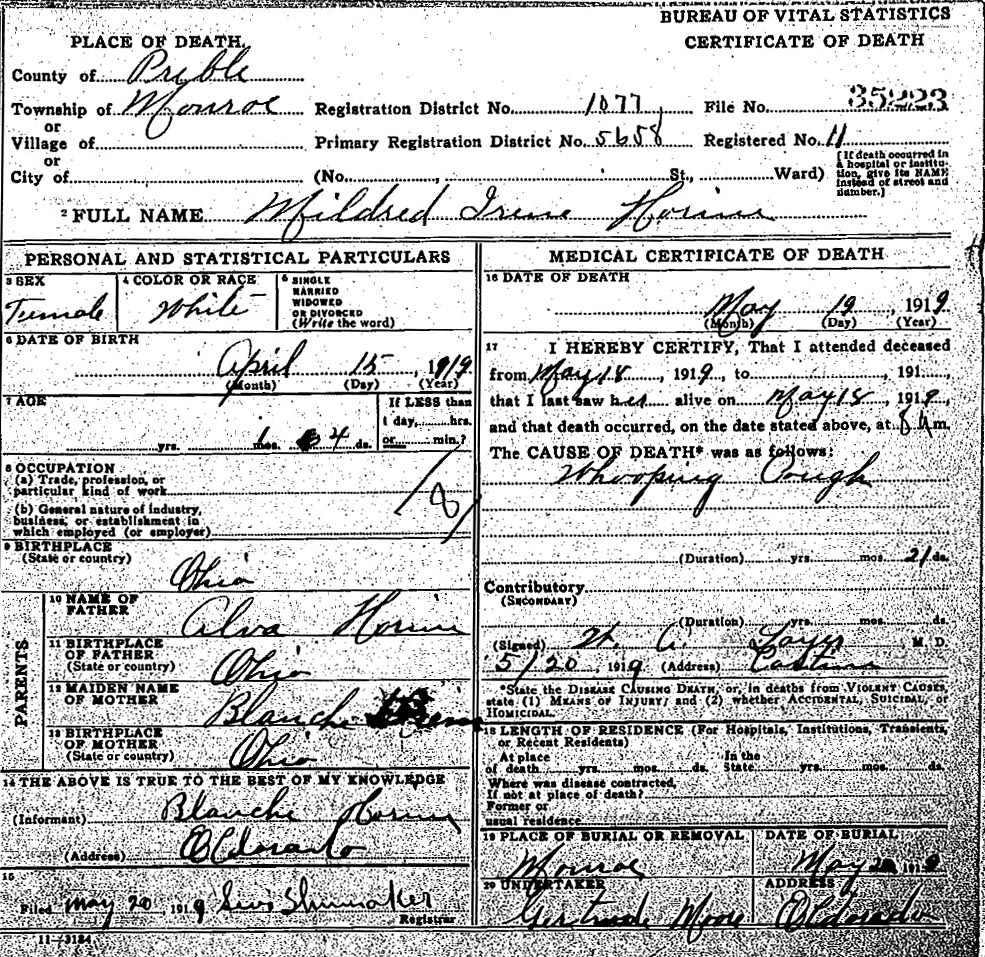 BUREAU OF VITAL STATISTICS
PLACE OF DEATH
CERTIFICATE OF DEATH
County of Preble
Township of Monroe Registration District No. 1077 File No. 35223
or
Village of Primary Registration District No. 5658 Registered No. 11
or
City of (No. , St., Ward)
[If death occurred in a hospital or institution, give its NAME instead of street and number.]
2 FULL NAME Mildred Irene
PERSONAL AND STATISTICAL PARTICULARS
3 SEX Female
4 COLOR OR RACE White
5 SINGLE
MARRIED
WIDOWED
OR DIVORCED
(Write the word)
6 DATE OF BIRTH
April 15, 1919
(Month) (Day) (Year)
7 AGE
yrs. 1 mos. 4 ds.
If LESS than
1 day, hrs.
or min.?
8 OCCUPATION
(a) Trade, profession, or
particular kind of work
(b) General nature of industry,
business, or establishment in
which employed (or employer)
9 BIRTHPLACE
(State or country)
Ohio
PARENTS
10 NAME OF
FATHER
Alva
11 BIRTHPLACE
OF FATHER
(State or country)
Ohio
12 MAIDEN NAME
OF MOTHER
Blanche
13 BIRTHPLACE
OF MOTHER
(State or country)
Ohio
14 THE ABOVE IS TRUE TO THE BEST OF MY KNOWLEDGE
(Informant) Blanche
(Address)
15
Filed May 20 1919 Shumaker
Registrar
11—3184
MEDICAL CERTIFICATE OF DEATH
16 DATE OF DEATH
May 19, 1919
(Month) (Day) (Year)
17 I HEREBY CERTIFY, That I attended deceased
from May 18, 1919, to , 191 ,
that I last saw her alive on May 18, 1919,
and that death occurred, on the date stated above, at 8 A m.
The CAUSE OF DEATH* was as follows:
Whooping Cough
(Duration) yrs. mos. 21 ds.
Contributory
(SECONDARY)
(Duration) yrs. mos. ds.
(Signed) M. D.
5/20, 1919 (Address) Castine
*State the DISEASE CAUSING DEATH, or, in deaths from VIOLENT CAUSES,
state (1) MEANS OF INJURY; and (2) whether ACCIDENTAL, SUICIDAL, or
HOMICIDAL.
18 LENGTH OF RESIDENCE (For Hospitals, Institutions, Transients,
or Recent Residents)
At place
of death yrs. mos. ds.
In the
State yrs. mos. ds.
Where was disease contracted,
If not at place of death?
Former or
usual residence
19 PLACE OF BURIAL OR REMOVAL
Monroe
DATE OF BURIAL
May 20 1919
20 UNDERTAKER
Gertrude Moore
ADDRESS